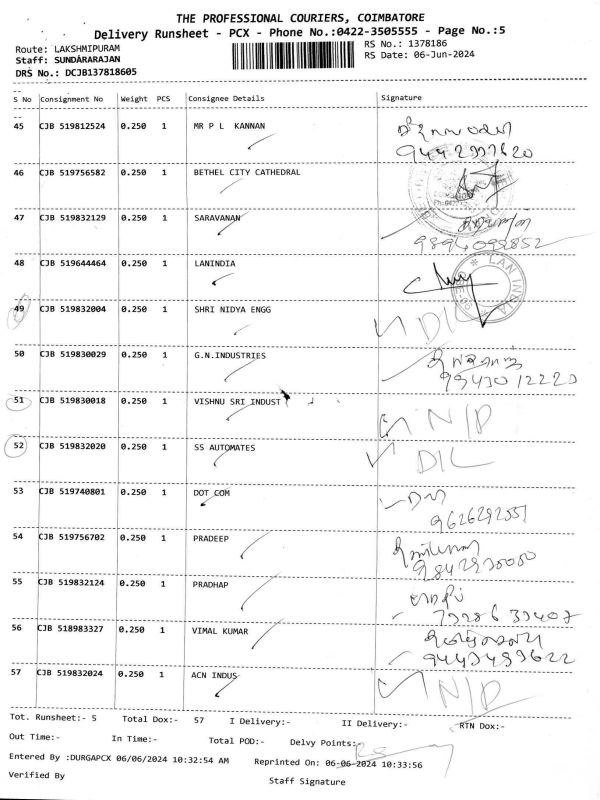 THE PROFESSIONAL COURIERS, COIMBATORE
Delivery Runsheet - PCX - Phone No.:0422-3505555 - Page No.:5
Route: LAKSHMIPURAM
RS No.: 1378186
Staff: SUNDARARAJAN
RS Date: 06-Jun-2024
DRS No.: DCJB137818605
S No Consignment No Weight PCS Consignee Details Signature
45 CJB 519812524 0.250 1 MR P L KANNAN
46 CJB 519756582 0.250 1 BETHEL CITY CATHEDRAL
47 CJB 519832129 0.250 1 SARAVANAN
9894092852
48 CJB 519644464 0.250 1 LANINDIA
LAN INDIA
49 CJB 519832004 0.250 1 SHRI NIDYA ENGG DIL
50 CJB 519830029 0.250 1 G.N.INDUSTRIES
51 CJB 519830018 0.250 1 VISHNU SRI INDUST N/P
52 CJB 519832020 0.250 1 SS AUTOMATES DIL
53 CJB 519740801 0.250 1 DOT COM
54 CJB 519756702 0.250 1 PRADEEP
55 CJB 519832124 0.250 1 PRADHAP
56 CJB 518983327 0.250 1 VIMAL KUMAR
57 CJB 519832024 0.250 1 ACN INDUS N/P
Tot. Runsheet:- 5 Total Dox:- 57 I Delivery:- II Delivery:- RTN Dox:-
Out Time:- In Time:- Total POD:- Delvy Points:-
Entered By :DURGAPCX 06/06/2024 10:32:54 AM Reprinted On: 06-06-2024 10:33:56
Verified By Staff Signature